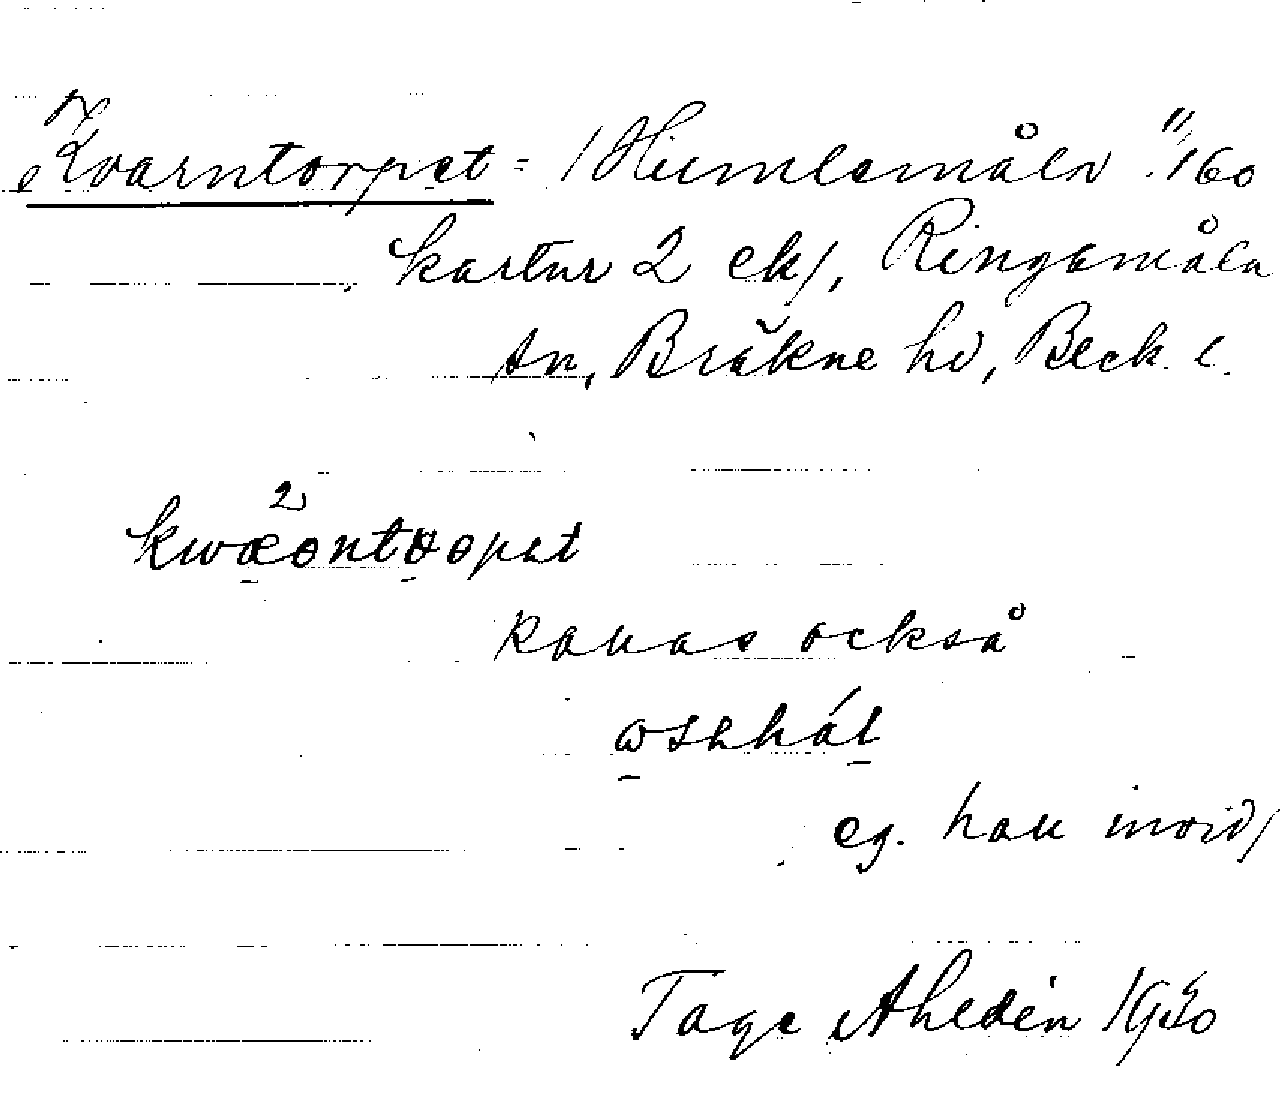 Kvarntorpet = /Humlamåla "/160
kartur 2 ek/, Ringamåla
sn, Bräkne hd, Bleck. l.
kwæontoopet
kallas också
eg.
Tage Ahldén 1930